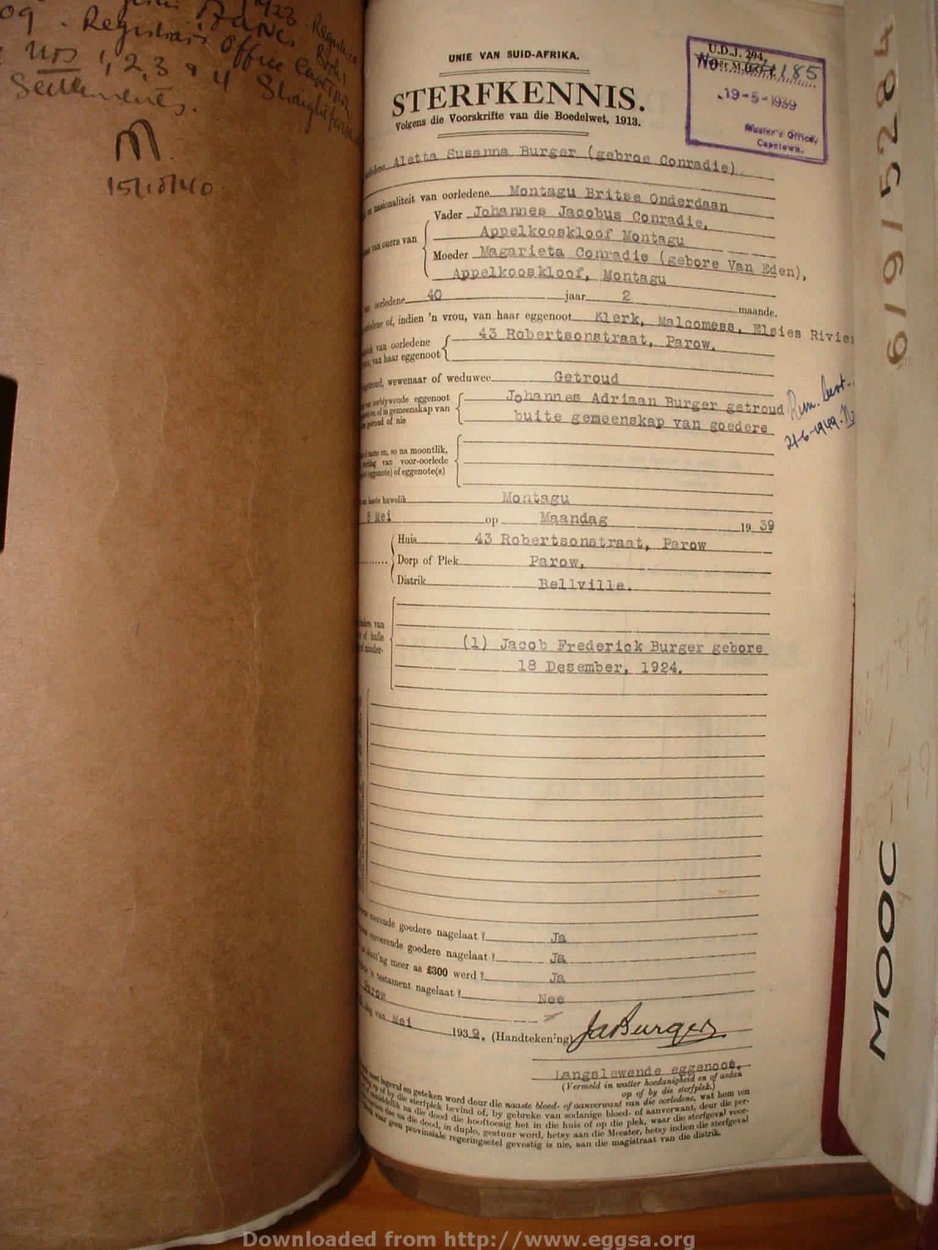 Registrar's Office
1, 2, 3 & 4
M.
15/10/40
UNIE VAN SUID-AFRIKA.
STERFKENNIS.
Volgens die Voorskrifte van die Boedelwet, 1913.
U.D.J. 294.
19-5-1939
Master's Office,
Capetown.
Aletta Susanna Burger (gebroe Conradie)
nasionaliteit van oorledene Montagu Britse Onderdaan
Vader Johannes Jacobus Conradie,
ouers van Appelkooskloof Montagu
Moeder Magarieta Conradie (gebore Van Eden),
Appelkooskloof, Montagu
oorledene 40 jaar 2 maande.
of, indien 'n vrou, van haar eggenoot Klerk, Malcomess, Elsies Rivier
van oorledene 43 Robertsonstraat, Parow.
van haar eggenoot
wewenaar of weduwee Getroud
eggenoot Johannes Adriaan Burger getroud
of in gemeenskap van buite gemeenskap van goedere
of nie
21-6-1949.
en, so na moontlik,
van voor-oorlede
of eggenote(s)
huwelik Montagu
8 Mei op Maandag 1939
Huis 43 Robertsonstraat, Parow
Dorp of Plek Parow.
Distrik Bellville.
(1) Jacob Frederick Burger gebore
18 Desember, 1924.
goedere nagelaat? Ja
goedere nagelaat? Ja
meer as £300 werd? Ja
testament nagelaat? Nee
Parow
van Mei 1939. (Handtekening) JaBurger
Langslewende eggenoot.
(Vermeld in watter hoedanigheid en of
op of by die sterfplek.)
en geteken word deur die naaste bloed- of aanverwant van die oorledene, wat hom ten
of by die sterfplek bevind of, by gebreke van sodanige bloed- of aanverwant, deur die per-
na die dood die hooftoesig het in die huis of op die plek, waar die sterfgeval voor-
na die dood, in duplo, gestuur word, hetsy aan die Meester, hetsy indien die sterfgeval
geen provinsiale regeringsetel gevestig is nie, aan die magistraat van die distrik.
MOOC 6/9/5284
Downloaded from http://www.eggsa.org